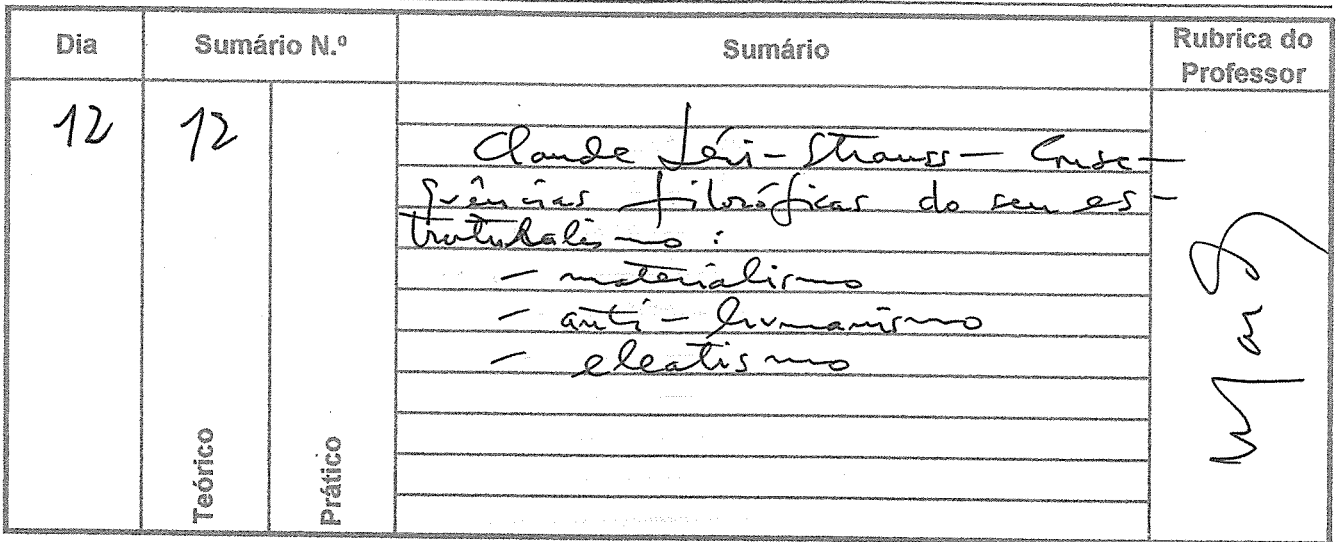 Dia Sumário N.º Sumário Rubrica do Professor
12 12
Claude Lévi-Strauss — Conse-
quências filosóficas do seu es-
truturalismo :
- materialismo
- anti-humanismo
- eleatismo
Teórico
Prático